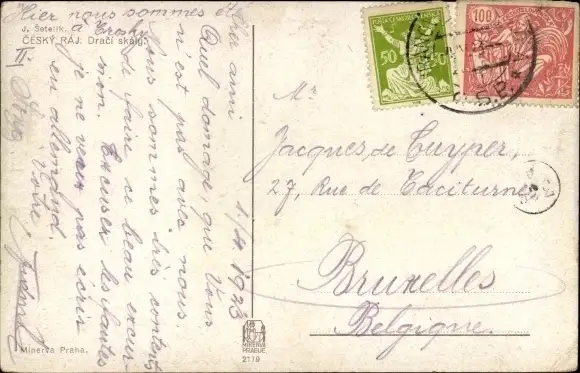 J. Šeterík.
ČESKÝ RÁJ: Dračí skály.
II.
1/4 1923
Cher ami
Quel domage, que Vous
n'est pas avec nous
Nous sommes très contents
de faire ce beau excur-
sion. Excuser les fautes
je ne veux pas écris
en allemand.
Votre
Hier nous sommes été
à Trosky
50 50
100
Mr
Jacques de Cuyper,
27, Rue de Taciturne
Bruxelles
Belgique.
Minerva Praha.
MINERVA
PRAGUE
2119